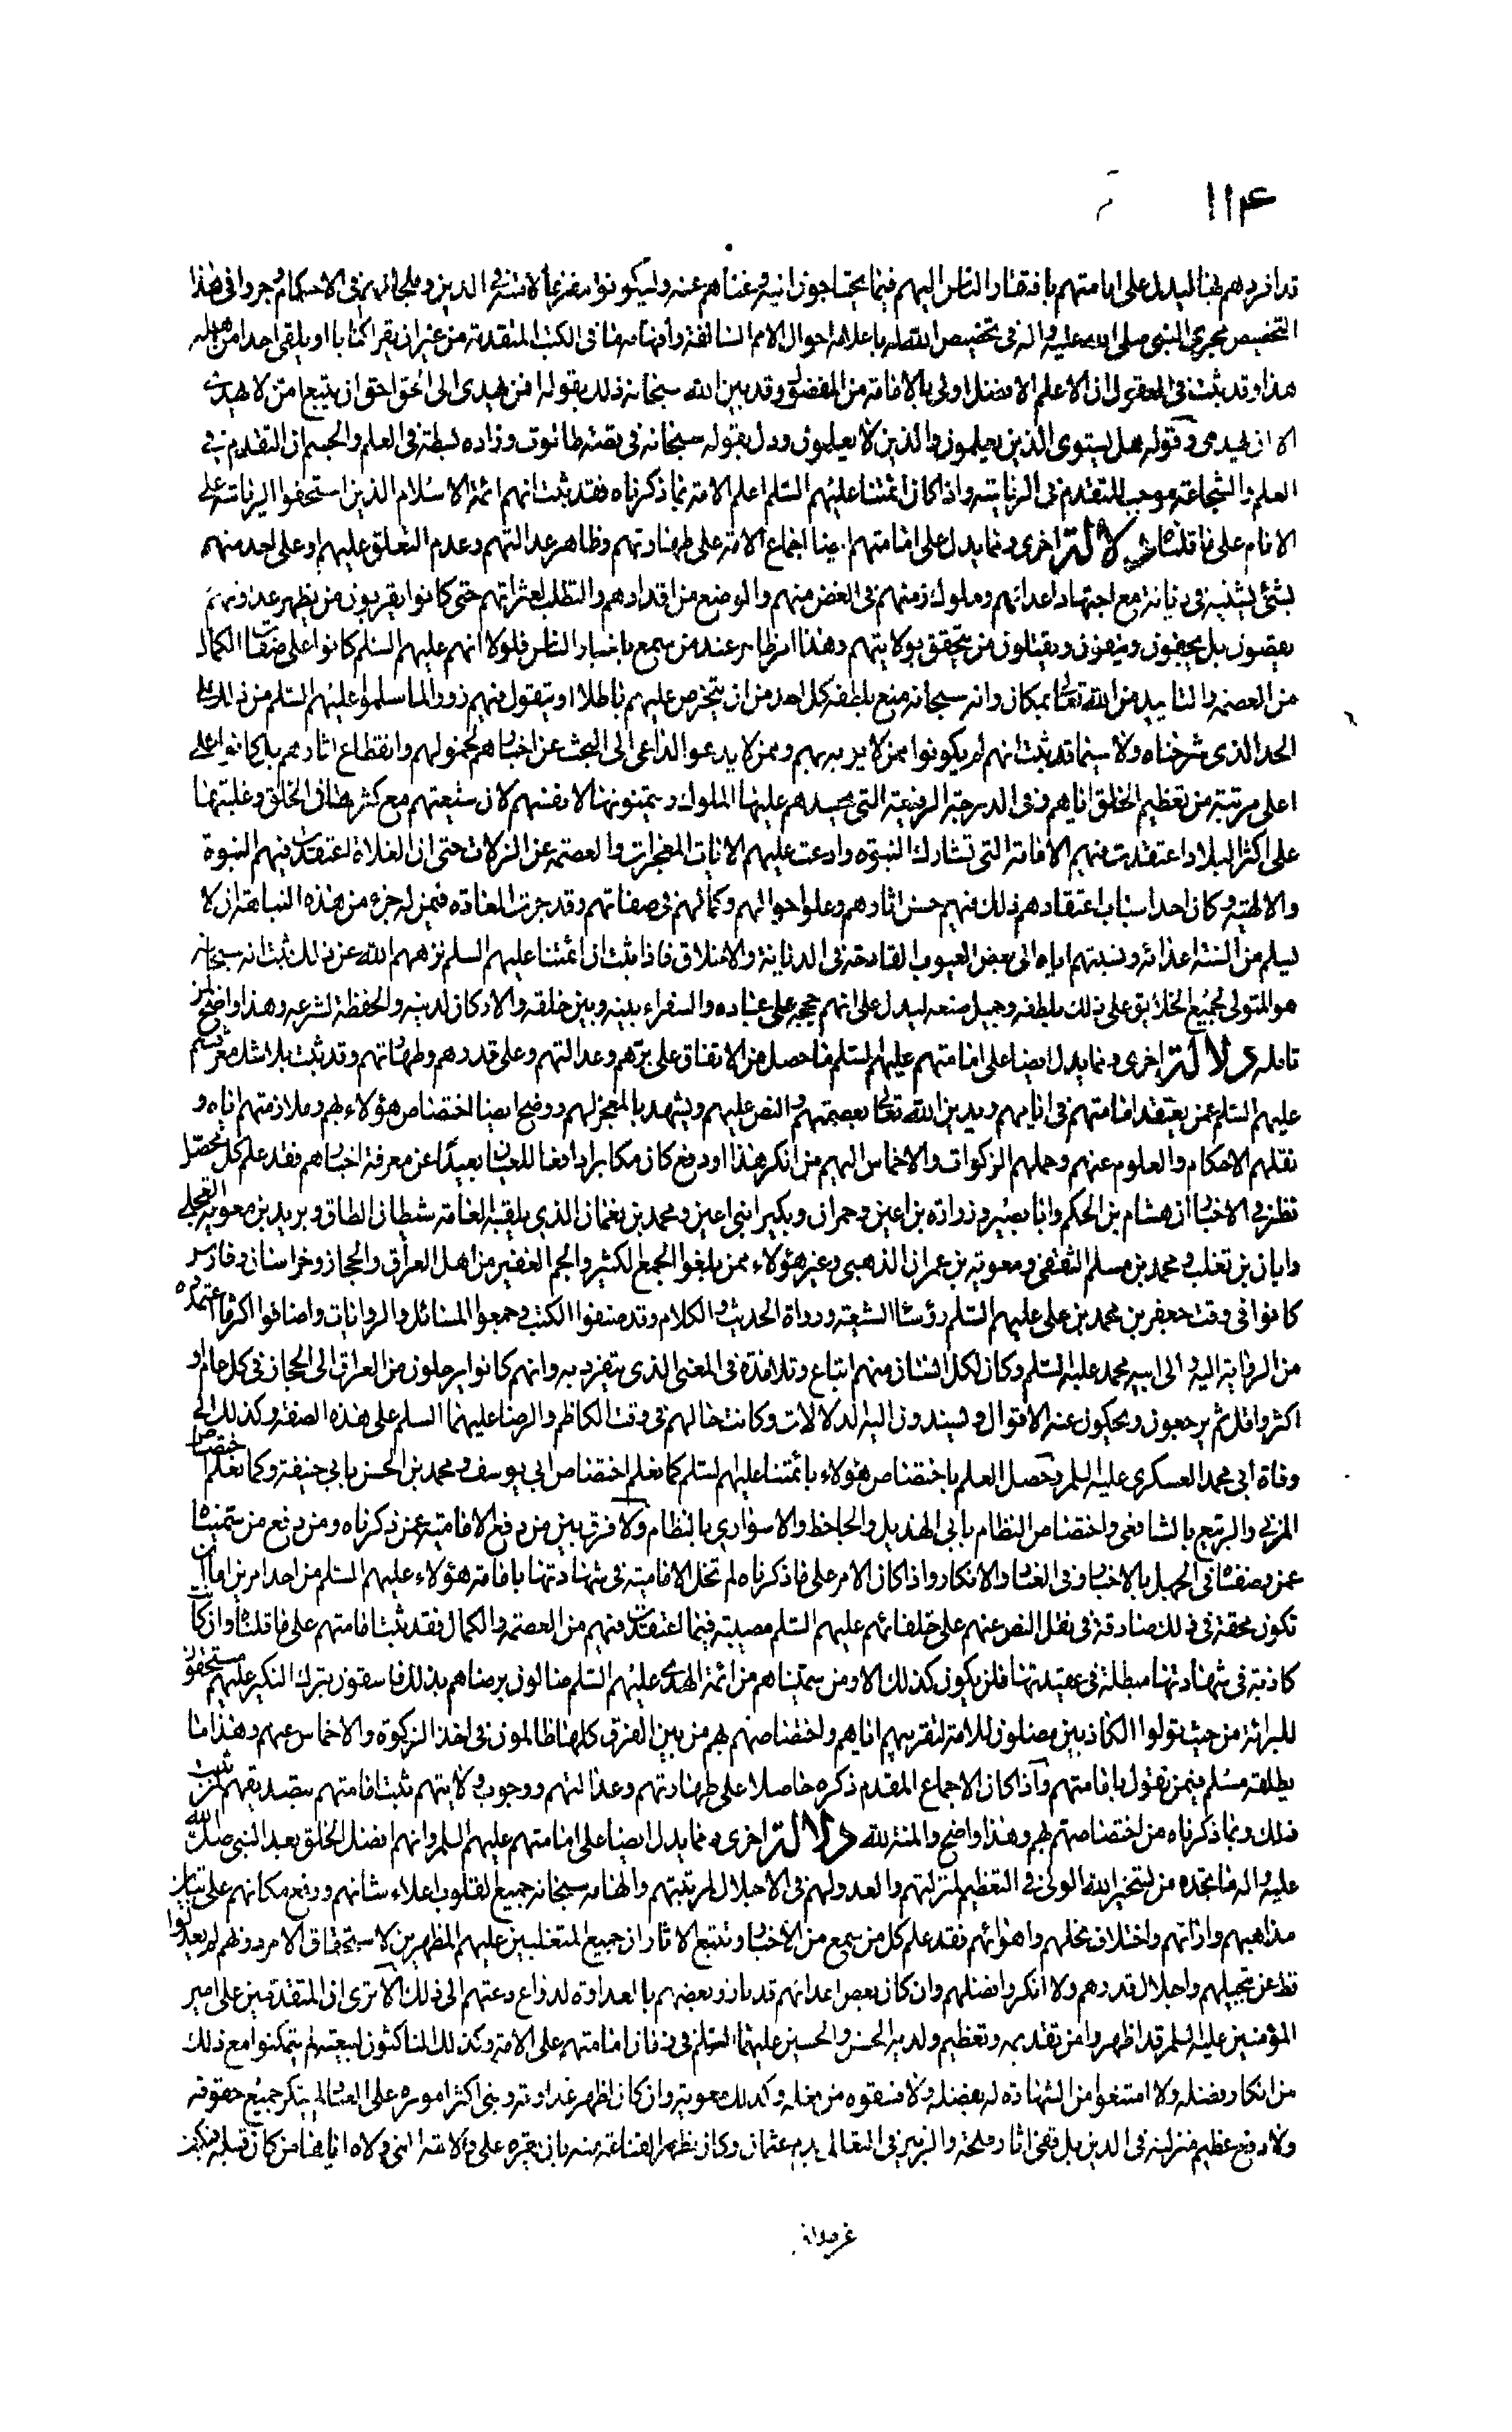 ۱۱۴
قد افردهم بها ليدل على امامتهم بافتقار الناس اليهم فيما يحتاجون اليه وغناهم عنه وليكونوا مفزعا لامته في الدين وملجأ لهم في الاحكام وجروا في هذا
التخصيص مجرى النبي صلى الله عليه واله في تخصيص الله له باعلامه احوال الامم السالفة وافهامه ما في الكتب المتقدمة من غير ان يقرا كتابا او يلقى احدا من اهله
هذا وقد ثبت في العقول ان الاعلم الافضل اولى بالامامة من المفضول وقد بين الله سبحانه ذلك بقوله افمن يهدى الى الحق احق ان يتبع امن لا يهدى
الا ان يهدى وقوله هل يستوى الذين يعلمون والذين لا يعلمون ودل بقوله سبحانه في قصة طالوت وزاده بسطة في العلم والجسم ان التقدم في
العلم والشجاعة موجب للتقدم في الرياسة واذا كان ائمتنا عليهم السلم اعلم الامة بما ذكرناه فقد ثبت انهم ائمة الاسلام الذين استحقوا الرياسة على
الانام على ما قلناه دلالة اخرى ومما يدل على امامتهم ايضا اجماع الامة على طهارتهم وظاهر عدالتهم وعدم التعلق عليهم او على احد منهم
بشئ يشينه في ديانة مع اجتهاد اعدائهم وملوك ازمنتهم في الغض منهم والوضع من اقدارهم والتطلب لعثراتهم حتى كانوا يقربون من يظهر عداوتهم
يقصون بل يجفون وينفون ويقتلون من يتحقق بولايتهم وهذا امر ظاهر عند من سمع باخبار الناس فلولا انهم عليهم السلم كانوا على صفات الكمال
من العصمة والتاييد من الله تعالى بمكان وانه سبحانه منع بلطفه كل احد من ان يتخرص عليهم باطلا او يتقول فيهم زورا لما سلموا عليهم السلم من ذلك على
الحد الذى شرحناه ولا سيما وقد ثبت انهم لم يكونوا ممن لا يؤبه بهم وممن لا يدعوا الداعى الى البحث عن اخبارهم لخمولهم وانقطاع اثارهم بل كانوا على
اعلى مرتبة من تعظيم الخلق اياهم وفي الدرجة الرفيعة التى يحسدهم عليها الملوك ويتمنونها لانفسهم لان شيعتهم مع كثرتها في الخلق وغلبتها
على اكثر البلاد اعتقدت فيهم الامامة التى تشارك النبوة وادعت عليهم الايات المعجزات والعصمة عن الزلات حتى ان الغلاة اعتقدت فيهم النبوة
والالهية وكان احد اسباب اعتقادهم ذلك فيهم حسن اثارهم وعلو احوالهم وكمالهم في صفاتهم وقد جرت العادة فيمن له جزء من هذه النباهة ان لا
يسلم من السنة اعدائه ونسبتهم اياه الى بعض العيوب القادحة في الديانة والاخلاق فاذا ثبت ان ائمتنا عليهم السلم نزههم الله عن ذلك ثبت انه سبحانه
هو المتولى لجميع الخلايق على ذلك بلطفه وجميل صنعه ليدل على انهم حججه على عباده والسفراء بينه وبين خلقه والاركان لدينه والحفظة لشرعه وهذا واضح لمن
تامله دلالة اخرى ومما يدل ايضا على امامتهم عليهم السلم ما حصل من الاتفاق على برهم وعدالتهم وعلو قدرهم وطهارتهم وقد ثبت بلا شك معرفتهم
عليهم السلم عمن يعتقد امامتهم في ايامهم ويدين الله تعالى بعصمتهم والنص عليهم ويشهد بالمعجز لهم ووضح ايضا اختصاص هؤلاء بهم وملازمتهم اياهم و
نقلهم الاحكام والعلوم عنهم وحملهم الزكوات والاخماس اليهم من انكر هذا او دفع كان مكابرا دافعا للعيان بعيدا عن معرفة اخبارهم فقد علم كل محصل
نظر في الاخبار ان هشام بن الحكم وابا بصير وزرارة بن اعين وحمران وبكير ابنى اعين ومحمد بن نعمان الذي يلقبه العامة شيطان الطاق وبريد بن معوية العجلى
وابان بن تغلب ومحمد بن مسلم الثقفى ومعوية بن عمران الذهبى وغير هؤلاء ممن بلغوا الجمع الكثير والجم الغفير من اهل العراق والحجاز وخراسان وفارس
كانوا في وقت جعفر بن محمد بن على عليهم السلم رؤسا الشيعة ورواة الحديث والكلام وقد صنفوا الكتب وجمعوا المسائل والروايات واضافوا اكثر ما اعتمدوه
من الرواية اليه والى ابيه محمد عليه السلم وكان لكل انسان منهم اتباع وتلامذة في المعنى الذى يتفرد به وانهم كانوا يرحلون من العراق الى الحجاز في كل عام او
اكثر واقل ثم يرجعون ويحكون عنه الاقوال ويسندون اليه الدلالات وكانت حالهم في وقت الكاظم والرضا عليهما السلم على هذه الصفة وكذلك الى
وفاة ابى محمد العسكرى عليه السلم وحصل العلم باختصاص هؤلاء بائمتنا عليهم السلم كما نعلم اختصاص ابى يوسف ومحمد بن الحسن بابى حنيفة وكما نعلم اختصاص
المزنى والربيع بالشافعى واختصاص النظام بابى الهذيل والجاحظ والاسوارى بالنظام ولا فرق بين من دفع الامامية عمن ذكرناه ومن دفع من سميناه
عمن وصفناه في الجهل بالاخبار وفي العناد والانكار واذا كان الامر على ما ذكرناه لم تخل الامامية في شهادتها بامامة هؤلاء عليهم السلم من احد امرين اما ان
تكون محقة في ذلك صادقة في نقل النص عنهم على خلفائهم عليهم السلم مصيبة فيما اعتقدت فيهم من العصمة والكمال فقد ثبت امامتهم على ما قلناه وان كانت
كاذبة في شهادتها مبطلة في عقيدتها فلن يكون كذلك الا ومن سميناهم من ائمة الهدى عليهم السلم ضالون برضاهم بذلك فاسقون بترك النكير عليهم مستحقون
للبرائة من حيث تولوا الكاذبين مضلون للامة لتقريبهم اياهم واختصاصهم بهم من بين الفرق كلها ظالمون في اخذ الزكوة والاخماس عنهم وهذا ما لا
يطلقه مسلم فيمن نقول بامامتهم واذا كان الاجماع المقدم ذكره حاصلا على طهارتهم وعدالتهم ووجوب ولايتهم ثبت امامتهم بتصديقهم لمن اثبت
ذلك وبما ذكرناه من اختصاصهم بهم وهذا واضح والمنة لله دلالة اخرى ومما يدل ايضا على امامتهم عليهم السلم وانهم افضل الخلق بعد النبي صلى الله
عليه واله ما نجده من تسخير الله الولى في التعظيم لمنزلتهم والعدو لهم في الاجلال لمرتبتهم والهامه سبحانه جميع القلوب اعلاء شانهم ورفع مكانهم على تباين
مذاهبهم وارائهم واختلاف نحلهم واهوائهم فقد علم كل من سمع من الاخبار وتتبع الاثار ان جميع المتغلبين عليهم المظهرين لاستحقاق الامر دونهم لم يعدلوا
قط عن تبجيلهم واجلال قدرهم ولا انكروا فضلهم وان كان بعض اعدائهم قد بارز بعضهم بالعداوة لدواع دعتهم الى ذلك الا ترى ان المتقدمين على امير
المؤمنين عليه السلم قد اظهروا من تقديمه وتعظيم ولديه الحسن والحسين عليهما السلم في زمان امامتهم على الامة وكذلك الناكثون لبيعته لم يتمكنوا مع ذلك
من انكار فضله ولا امتنعوا من الشهادة له بفضله ولا فسقوه من فعله وكذلك معوية وان كان اظهر عداوته وبنى اكثر اموره على العناد لم ينكر جميع حقوقه
ولا دفع عظيم منزلته في الدين بل قفى اثار طلحة والزبير في التعالل بدم عثمان وكان يظهر القناعة منه بان يقره على ولايته التى ولاه اياها من كان قبله فيكف